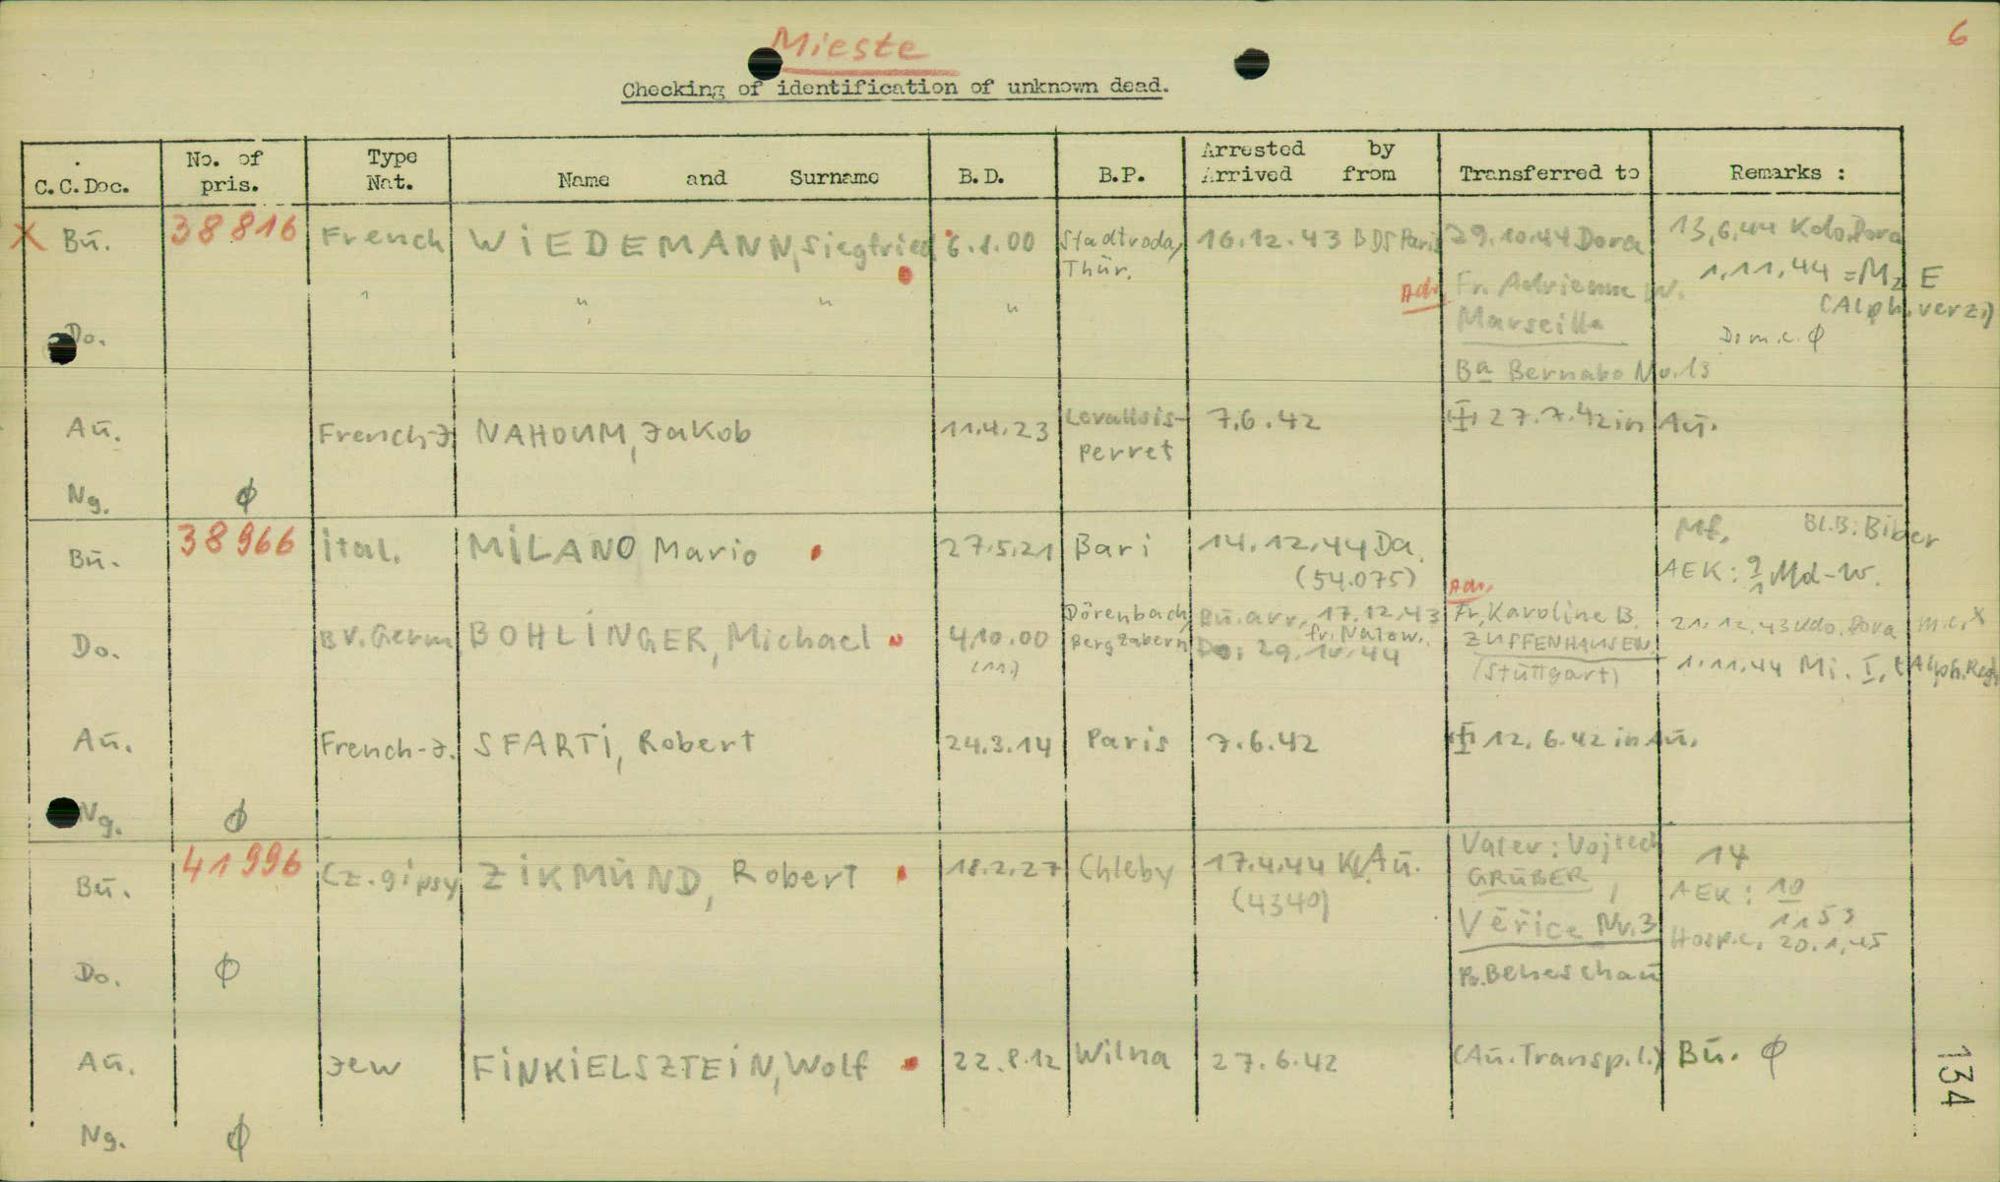 Mieste
6
Checking of identification of unknown dead.
C.C.Doc. No. of pris. Type Nat. Name and Surname B.D. B.P. Arrested by Arrived from Transferred to Remarks :
X Bū. 38816 French WIEDEMANN, Siegfried 6.1.00 Stadtroda, Thür. 16.12.43 BDS Paris 29.10.44 Dora 13.6.44 Kdo. Dora
1.11.44 = Mz E
(Alph. verz.)
Do. " " " " Adr. Fr. Adrienne W.
Marseille
Dom.c. ϕ
Ba Bernabo No. 13
Aū. French-J NAHOUM, Jakob 11.4.23 Levallois-Perret 7.6.42 27.7.42 in Aū.
Ng. ϕ
Bū. 38966 ital. MILANO Mario 27.5.21 Bari 14.12.44 Da. (54.075) Mf, Bl.B: Biber
AEK: 9/1 Md-W.
Do. BV. Germ BOHLINGER, Michael 4.10.00 (11.) Dörenbach, Bergzabern Bū. arr. 17.12.43 fr. Natzw. Do: 29.10.44 Adr. Fr. Karoline B. ZUFFENHAUSEN (Stuttgart) 21.12.43 Kdo. Dora m.c. X
1.11.44 Mi. I, (Alph. Reg)
Aū. French-J. SFARTI, Robert 24.3.14 Paris 7.6.42 12.6.42 in Aū.
Ng. ϕ
Bū. 41996 Cz. gipsy ZIKMUND, Robert 18.2.27 Chleby 17.4.44 Kl. Aū. (4340) Vater: Vojtech GRUBER, Věřice Nr. 3 14
AEK: 10
1153
Hosp.c. 20.1.45
Do. ϕ Beneschau
Aū. Jew FINKIELSZTEIN, Wolf 22.8.12 Wilna 27.6.42 (Aū. Transp.l.) Bū. ϕ
Ng. ϕ
134